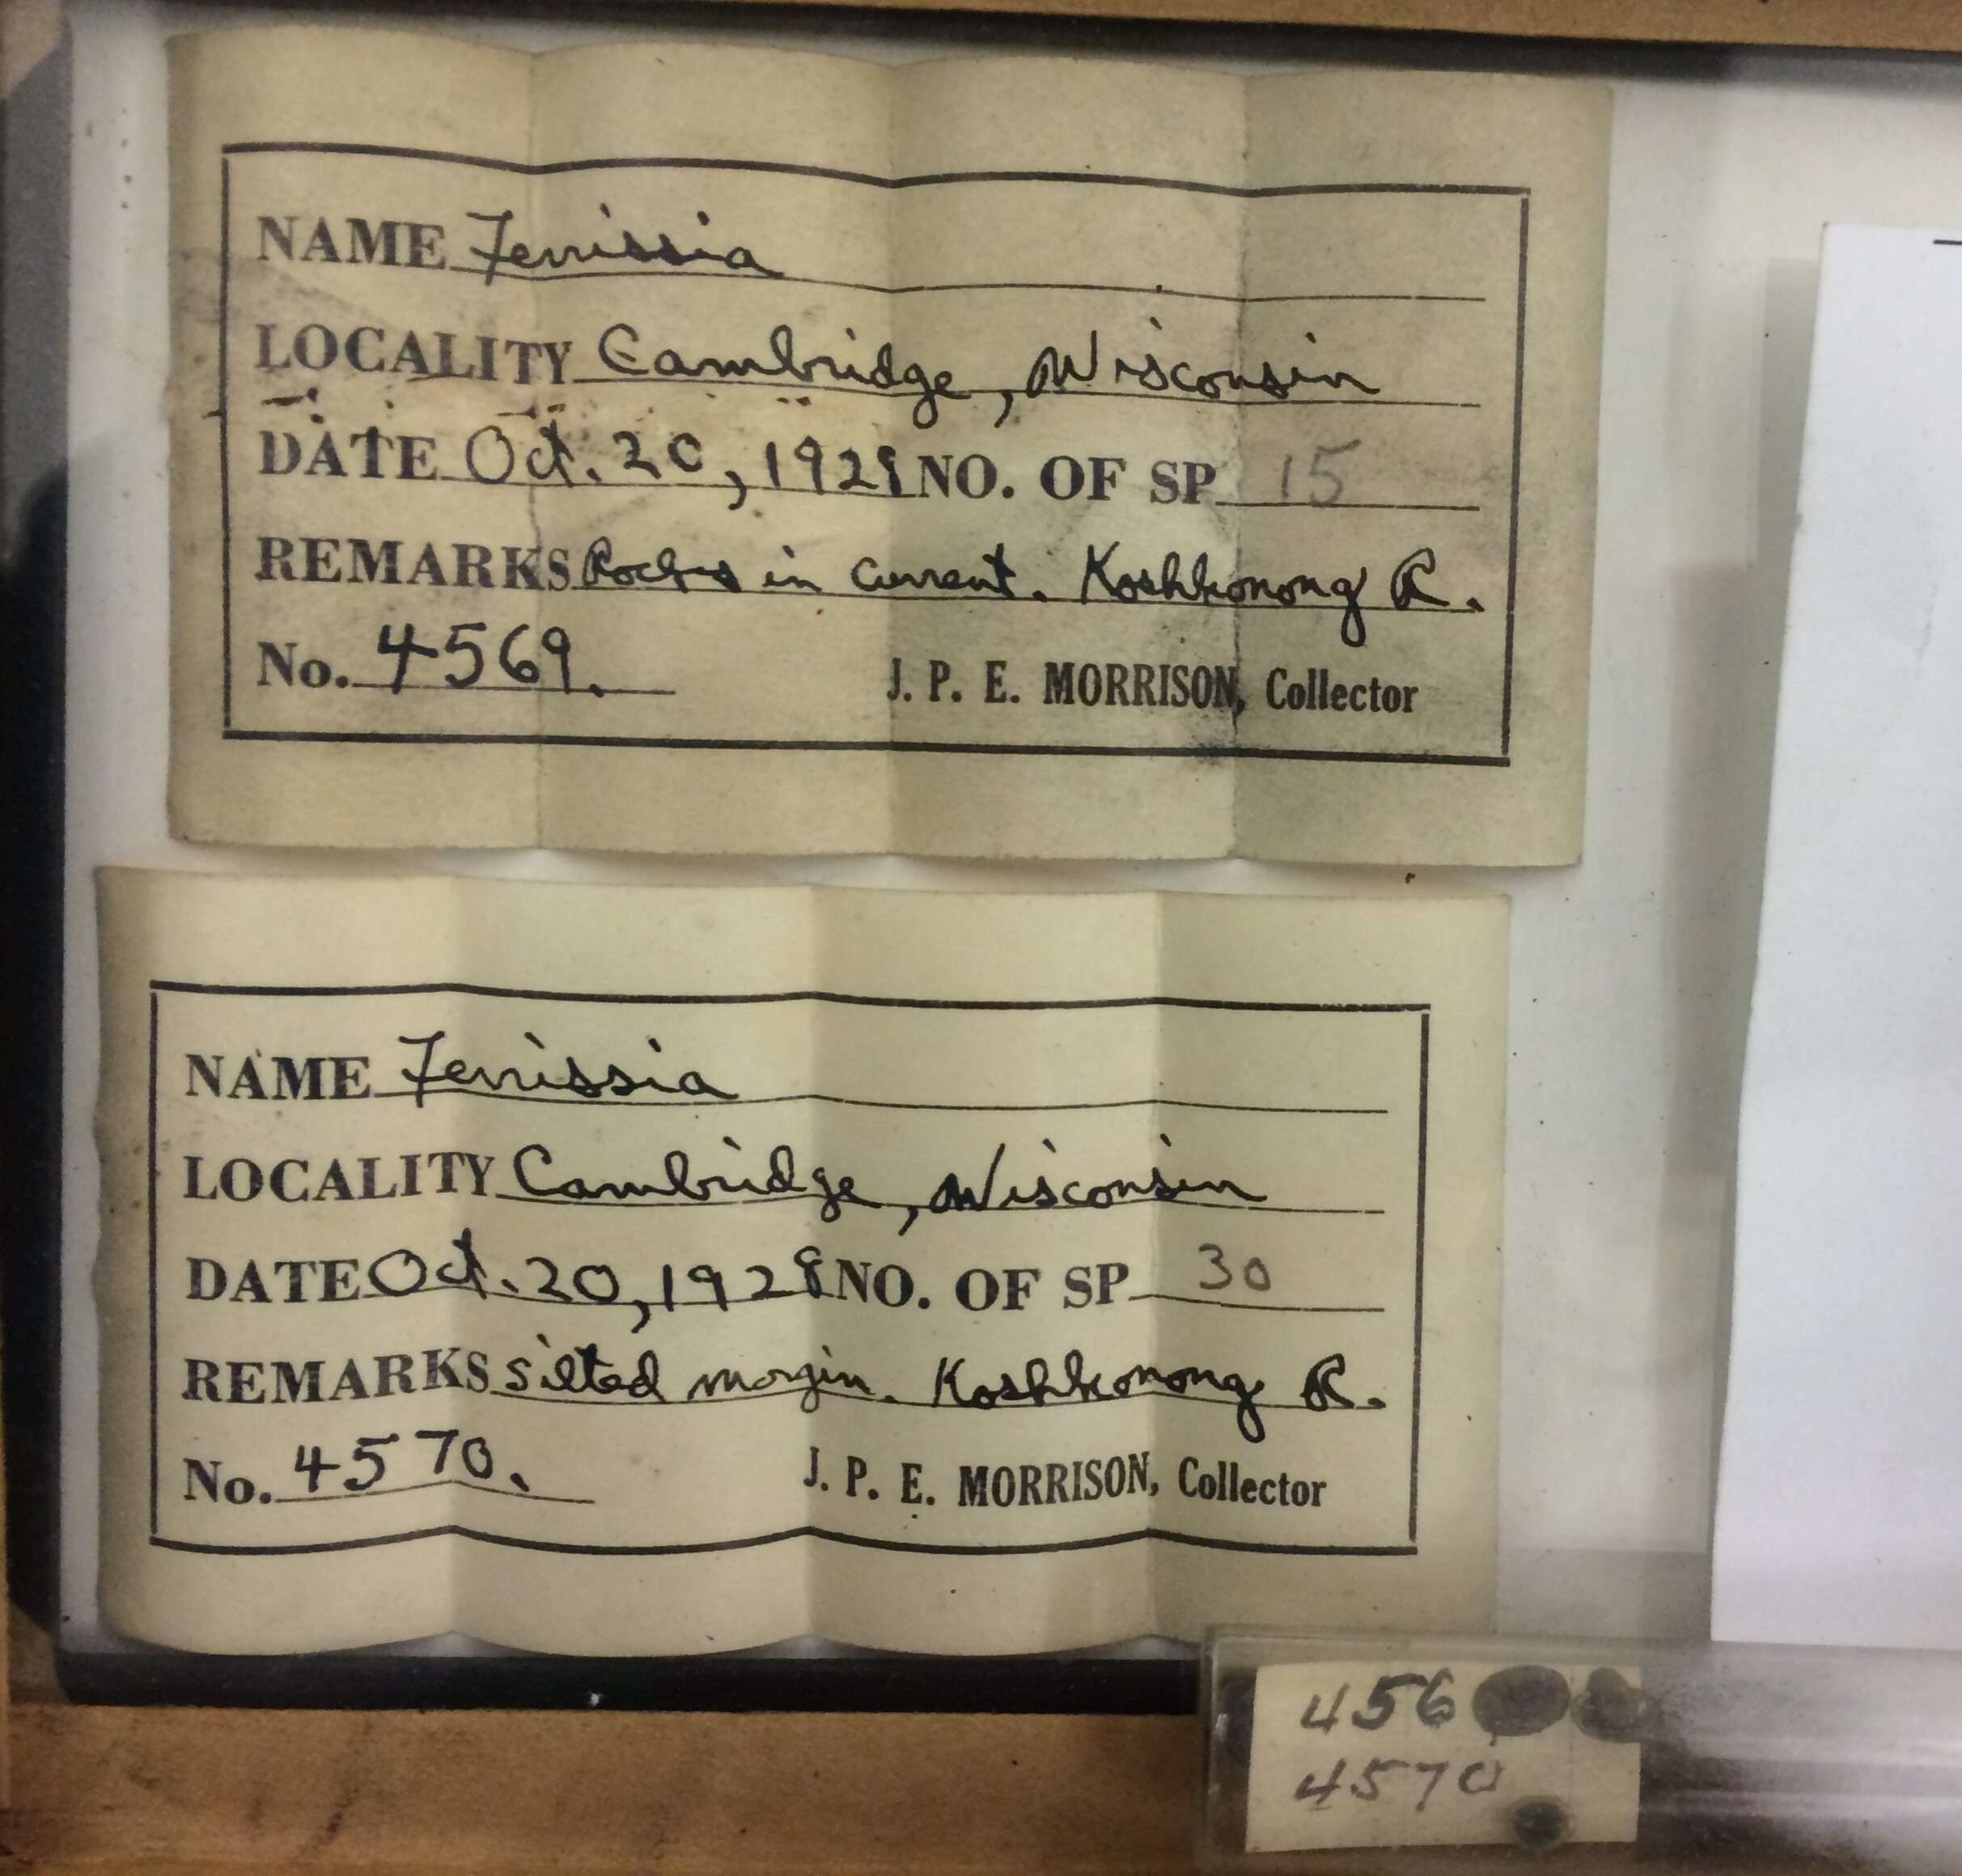 NAME Ferrissia
LOCALITY Cambridge, Wisconsin
DATE Oct. 20, 1928 NO. OF SP 15
REMARKS Rocks in current. Koshkonong R.
No. 4569.
J. P. E. MORRISON, Collector
NAME Ferrissia
LOCALITY Cambridge, Wisconsin
DATE Oct. 20, 1928 NO. OF SP 30
REMARKS silted margin. Koshkonong R.
No. 4570.
J. P. E. MORRISON, Collector
456
4570